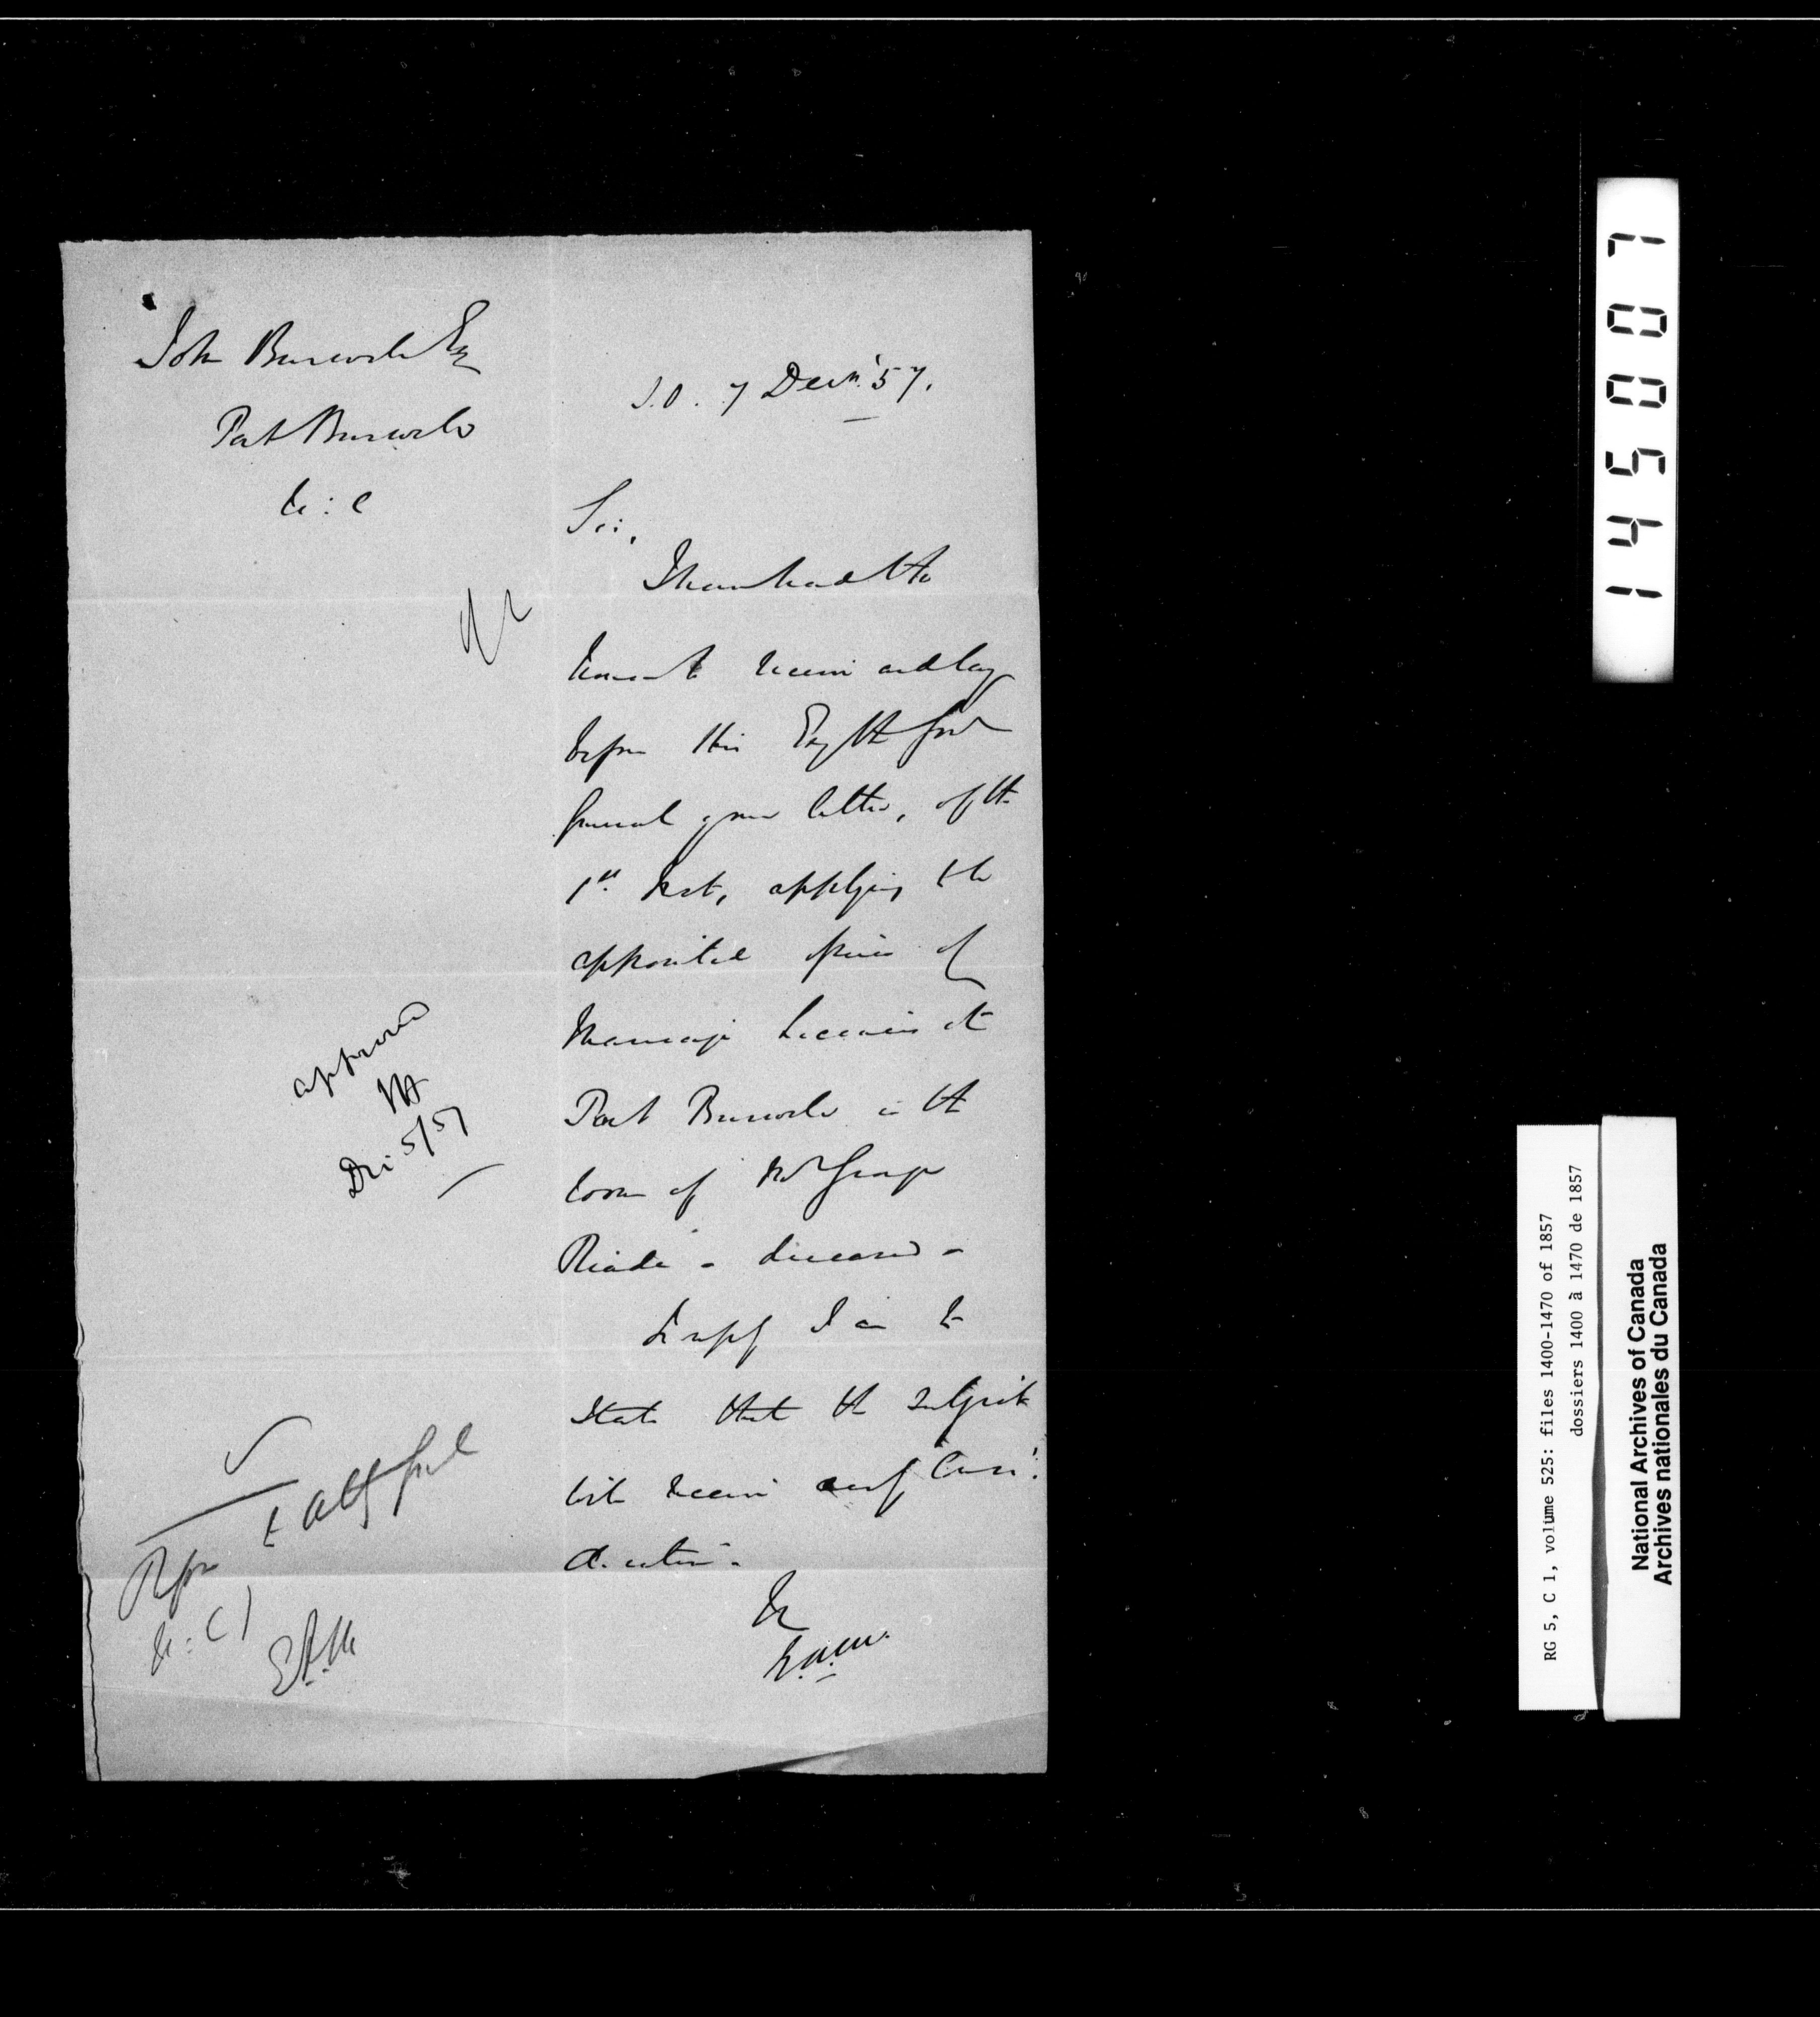 John Burwell Esq
Port Burwell
U: C
S.O. 7 Decr. '57.
Sir,
I have had the
honor to receive and lay
before His Exy the Govr
General your letter, of the
1st Inst, applying to be
appointed issuer of
Marriage Licenses at
Port Burwell in the
room of Mr George
Reade - deceased -
In reply I am to
state that the subject
will receive every Consi:
deration -
E.A.M.
approved
Dec 5/57
E.A.M
1 4 5 0 0 7
RG 5, C 1, volume 525: files 1400-1470 of 1857
dossiers 1400 à 1470 de 1857
National Archives of Canada
Archives nationales du Canada